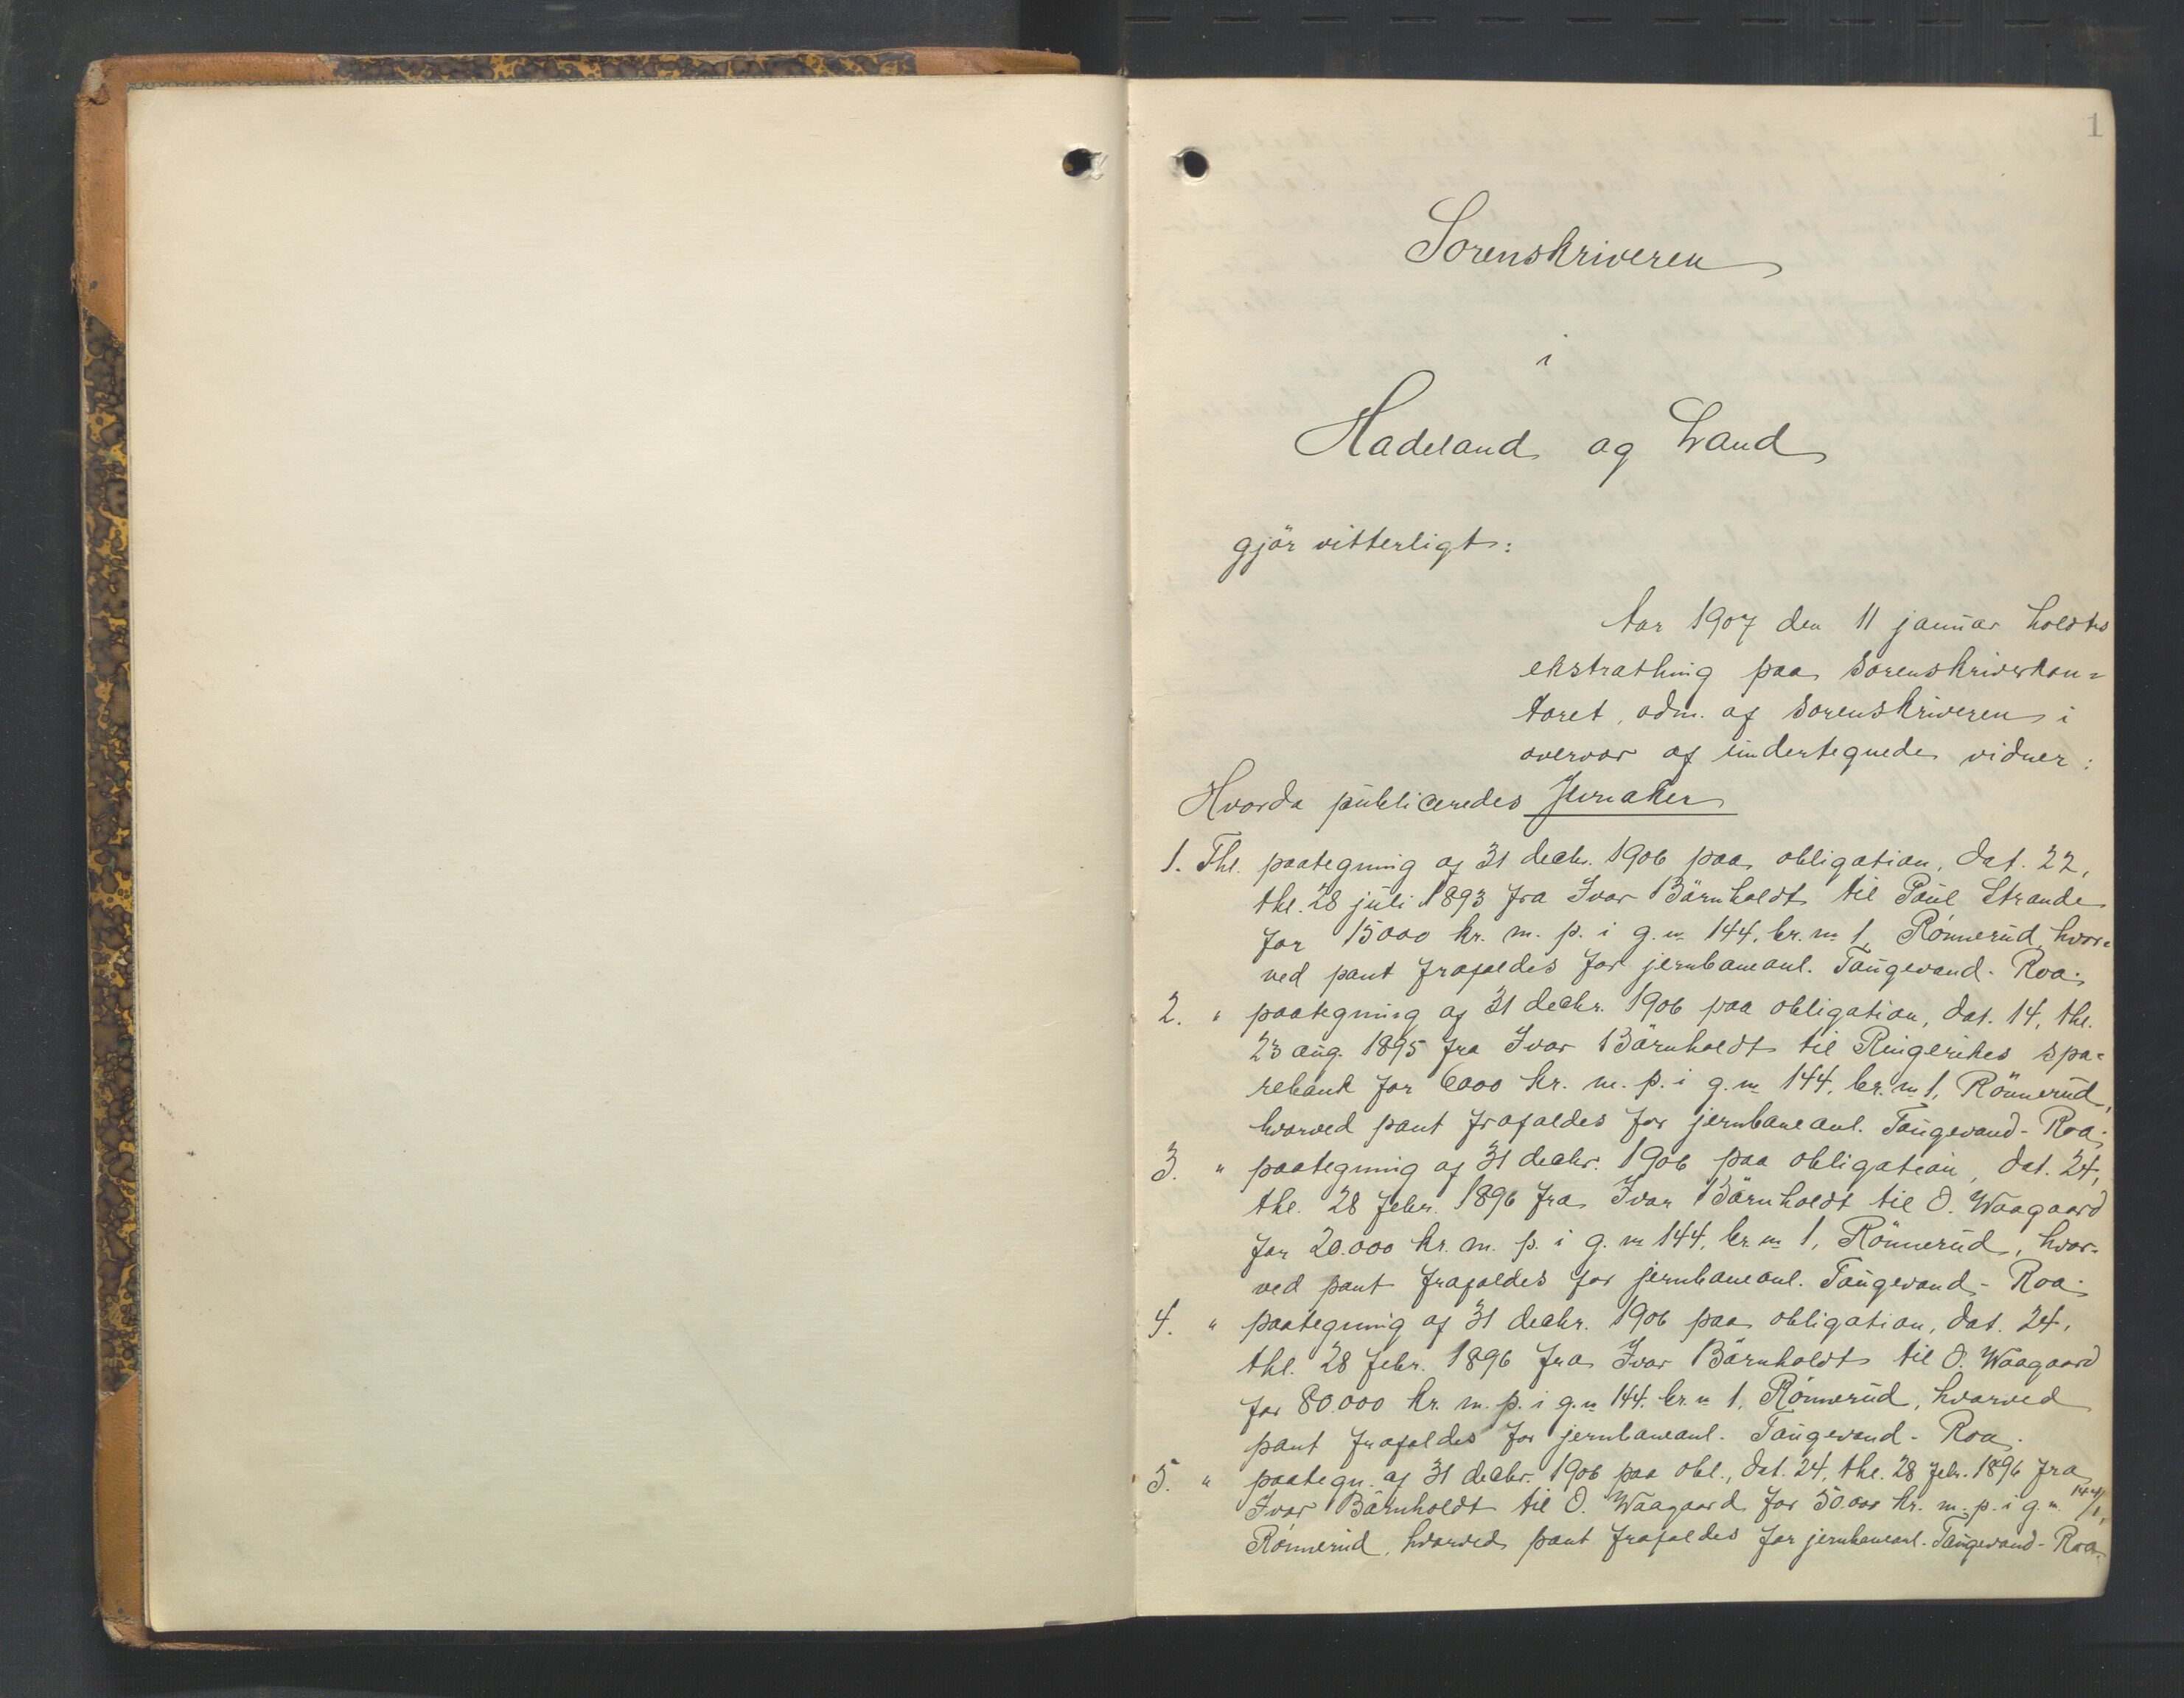 1
Sorenskriveren
i
Hadeland og Land
gjör vitterligt:
Aar 1907 den 11 januar holdtes
ekstrathing paa sorenskriverkon=
toret, adm. af sorenskriveren i
overvær af undertegnede vidner:
Hvorda publiceredes Jevnaker
1. Thl. paategning af 31 decbr. 1906 paa obligation, dat. 22,
thl. 28 juli 1893 fra Ivar Börnholdt til Paul Strande
for 15000 kr. m. p. i g. no 144, br. no 1, Rönnerud, hvor=
ved pant frafaldes for jernbaneanl. Taugevand - Roa.
2. " paategning af 31 decbr. 1906 paa obligation, dat. 14, thl.
23 aug. 1895 fra Ivar Börnholdt til Ringerikes spa=
rebank for 6000 kr. m. p. i g. no 144, br. no 1, Rönnerud,
hvorved pant frafaldes for jernbaneanl. Taugevand - Roa.
3. " paategning af 31 decbr. 1906 paa obligation, dat. 24,
thl. 28 febr. 1896 fra Ivar Börnholdt til O. Waagaard
for 20.000 kr. m. p. i g. no 144, br. no 1, Rönnerud, hvor=
ved pant frafaldes for jernbaneanl. Taugevand - Roa.
4. " paategning af 31 decbr. 1906 paa obligation, dat. 24,
thl. 28 febr. 1896 fra Ivar Börnholdt til O. Waagaard
for 80.000 kr. m. p. i g. n 144. br. n 1, Rönnerud, hvorved
pant frafaldes for jernbaneanl. Taugevand - Roa.
5. " paategn. af 31 decbr. 1906 paa obl., dat. 24, thl. 28 febr. 1896 fra
Ivar Börnholdt til O. Waagaard for 50.000 kr. m. p. i g. n. 144/1,
Rönnerud, hvorved pant frafaldes for jernbaneanl. Taugevand - Roa.